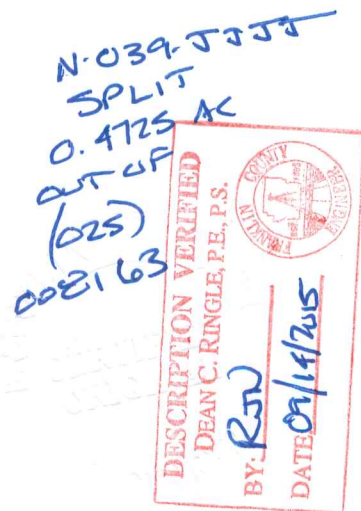 N-039-JJJJ
SPLIT
0.4725 AC
OUT OF
(025)
002163
DESCRIPTION VERIFIED
DEAN C. RINGLE, P.E., P.S.
BY: RJW
DATE: 09/14/2015
FRANKLIN COUNTY
ENGINEER